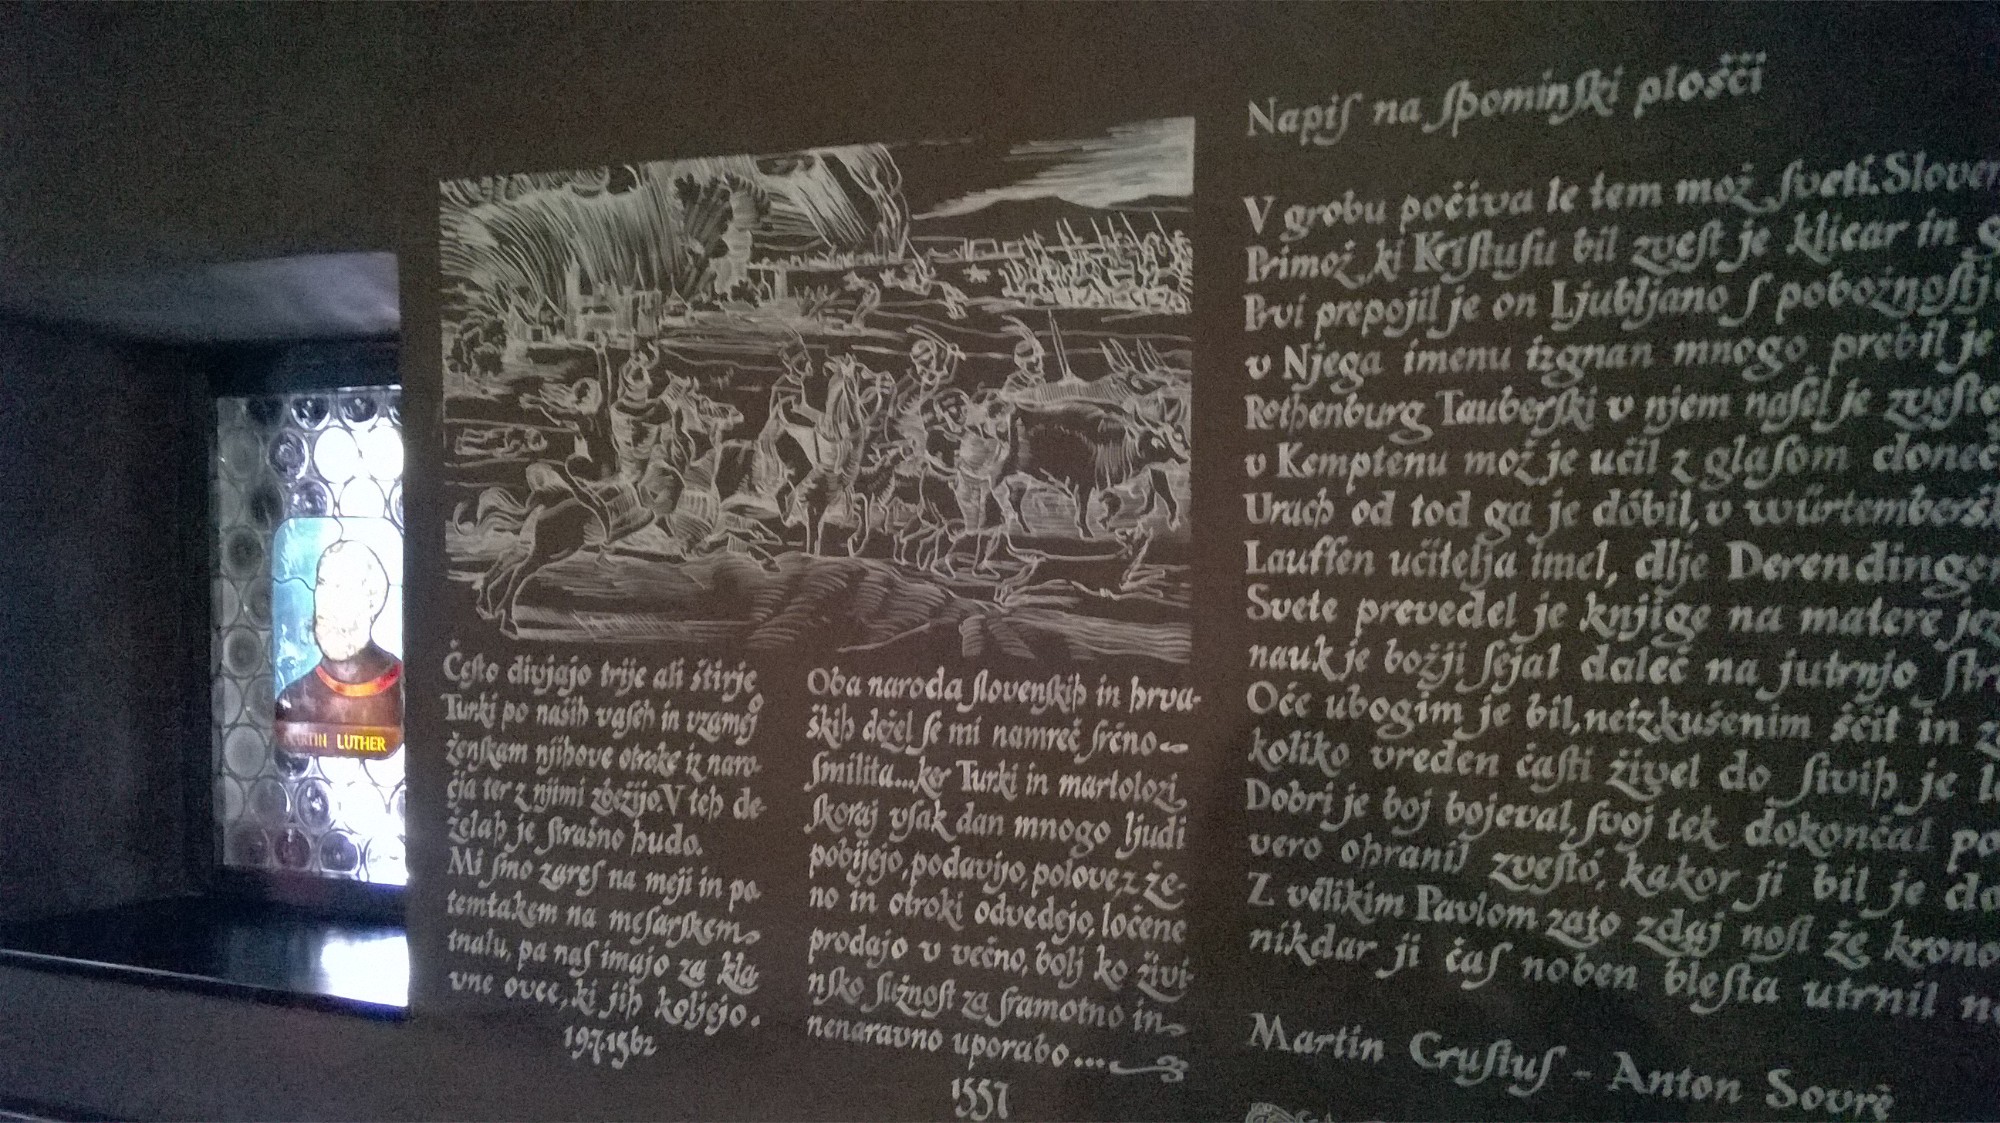 MARTIN LUTHER
Često divjajo trije ali štirje
Turki po naših vaseh in vzamejo
ženskam njihove otroke iz naro-
čja ter z njimi zbežijo. V teh de-
želah je strašno hudo.
Mi smo zares na meji in po
temtakem na mesarskem
tnalu, pa nas imajo za kla
vne ovce, ki jih koljejo.
19.7.1562
Oba naroda slovenskih in hrva-
ških dežel se mi namreč srčno
smilita... ker Turki in martolozi
skoraj vsak dan mnogo ljudi
pobijejo, podavijo, polove, z že-
no in otroki odvedejo, ločene
prodajo v večno, bolj ko živi-
nsko sužnost za sramotno in
nenaravno uporabo...
1557
Napis na spominski plošči
V grobu počiva le tem mož sveti. Sloven
Primož, ki Kristusu bil zvest je klicar in
Prvi prepojil je on Ljubljano s pobožnostj
v Njega imenu izgnan mnogo prebil je
Rothenburg Tauberski v njem našel je zveste
v Kemptenu mož je učil z glasom doneč
Urach od tod ga je dóbil, v würtemberšk
Lauffen učitelja imel, dlje Derendinge
Svete prevedel je knjige na matere jez
nauk je božji sejal daleč na jutrnjo str
Oče ubogim je bil, neizkušenim ščit in
koliko vreden časti živel do sivih je l
Dobri je boj bojeval, svoj tek dokončal po
vero ohranil zvestó, kakor ji bil je da
Z vélikim Pavlom zato zdaj nosi že krono
nikdar ji čas noben blesta utrnil ne
Martin Crusius - Anton Sovrè